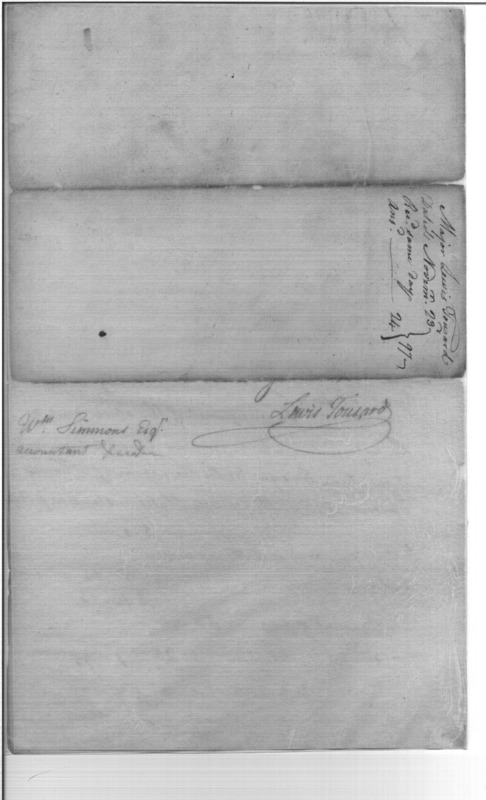 Major Lewis Tousard
Dated Novem. 23
Rec.d same day
Ans.r 24 } 97
Lewis Tousard
Wm Simmons Esqr
accountant